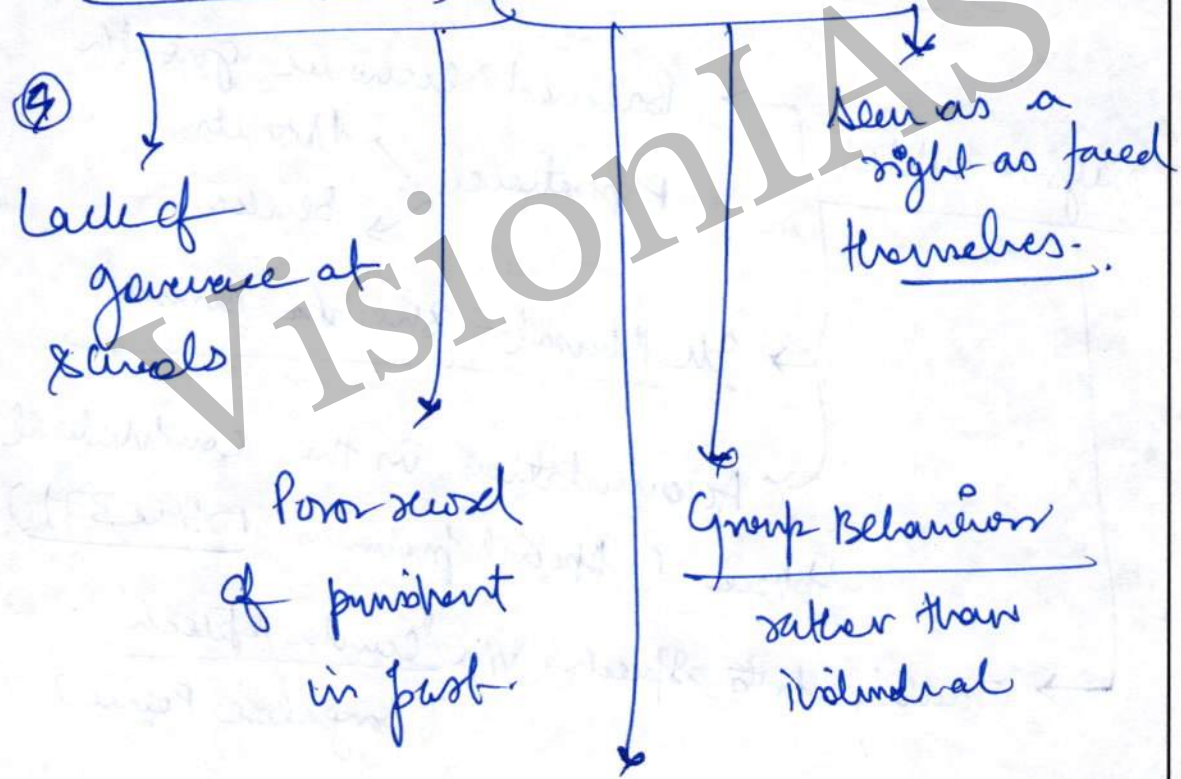 ④
Lack of
governance at
schools
Poor record
of punishent
in past.
Group Behaviour
rather than
individual
seen as a
right as faced
themselves.
VisionIAS